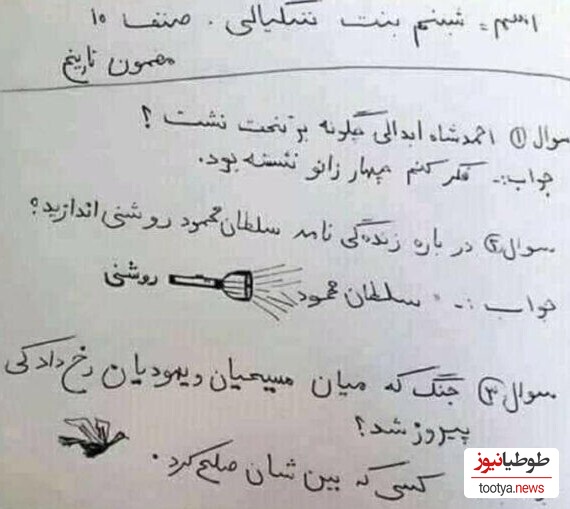 اسم = شبنم بنت شکیالی. صنف ۱۰
مضمون تاریخ
سوال ۱ احمدشاه ابدالی چگونه بر تخت نشست؟
جواب:- فکر کنم چهار زانو نشسته بود.
سوال ۲ در باره زندگی نامه سلطان محمود روشنی اندازید؟
جواب :- سلطان محمود روشنی
سوال ۳ جنگ که میان مسیحیان و یهودیان رخ داد کی
پیروز شد؟
کسی که بین شان صلح کرد.
طوطیانیوز
tootya.news